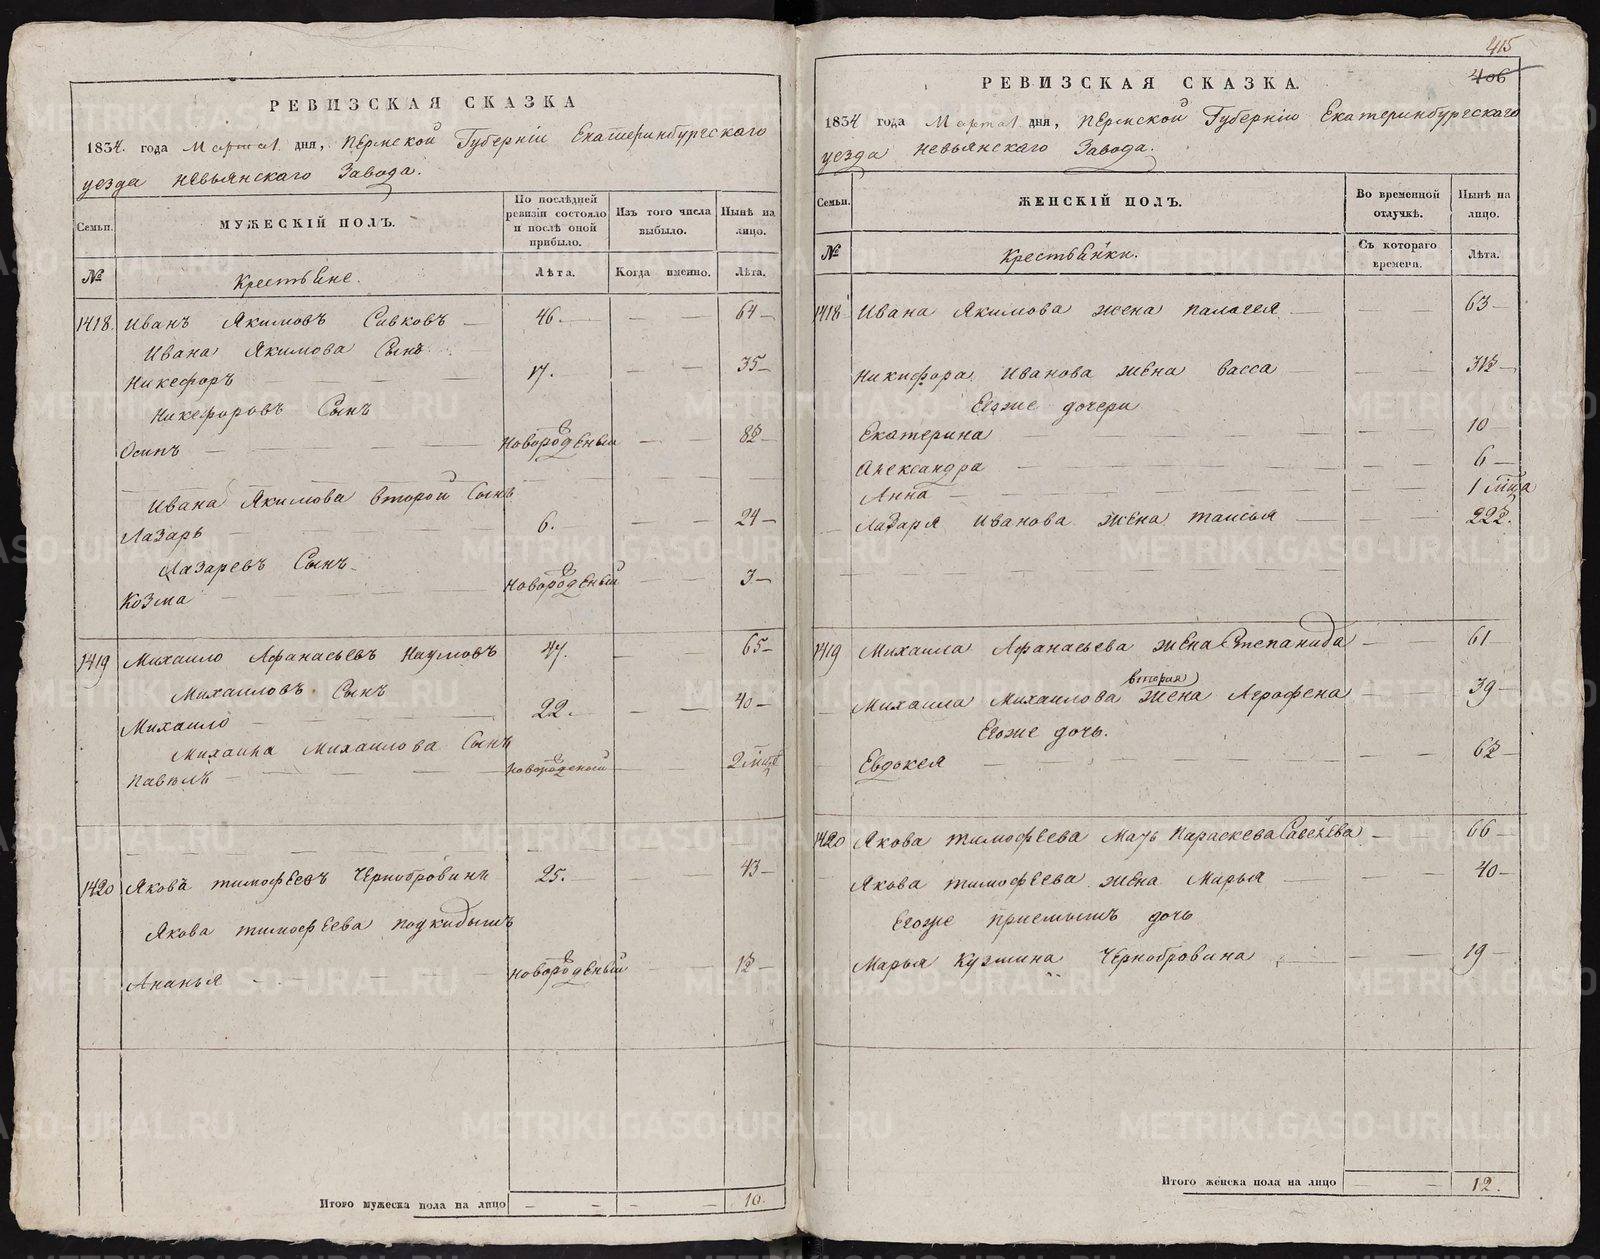 РЕВИЗСКАЯ СКАЗКА
1834. года Марта 1 дня, Пермской Губернiи Екатеринбургскаго
уезда Невьянскаго Завода.
Семьи.
МУЖЕСКIЙ ПОЛЪ.
По послѣдней ревизiи состояло и послѣ оной прибыло.
Изъ того числа выбыло.
Нынѣ на лицо.
№
Крестьяне.
Лѣта.
Когда именно.
Лѣта.
1418. Иванъ Якимовъ Сивковъ 46. 64
Ивана Якимова Сынъ
Никефоръ 17. 35
Никефоровъ Сынъ
Осипъ новорожденный 8½
Ивана Якимова второй Сынъ
Лазарь 6. 24
Лазаревъ Сынъ
Козма новорожденный 3
1419 Михаило Афанасьевъ Наумовъ 47. 65
Михаиловъ Сынъ
Михаило 22. 40
Михаила Михаилова Сынъ
Павелъ новорожденый 2 мцсе
1420 Яковъ тимофеевъ Чернобровинъ 25. 43
Якова тимофеева подкидышъ
Ананья новорожденный 1½
Итого мужеска пола на лицо 10.
415
406
РЕВИЗСКАЯ СКАЗКА.
1834 года Марта 1 дня, Пермской Губернiи Екатеринбургскаго
уезда Невьянскаго Завода.
Семьи.
ЖЕНСКIЙ ПОЛЪ.
Во временной отлучкѣ.
Нынѣ на лицо.
№
Крестьянки.
Съ котораго времени.
Лѣта.
1418 Ивана Якимова жена палагея 63
Никифора Иванова жена васса 31½
Егоже дочери
Екатерина 10
Александра 6
Анна 1 мца
Лазаря Иванова жена таисья 22½.
1419 Михаила Афанасьева жена Степанида 61
вторая
Михаила Михаилова жена Агрофена 39
Егоже дочь.
Евдокея 6½
1420 Якова тимофеева мать Параскева Савельева 66
Якова тимофеева жена Марья 40
Егоже приемышъ дочь
Марья Кузмина Чернобровина 19
Итого женска пола на лицо 12.
METRIKI.GASO-URAL.RU